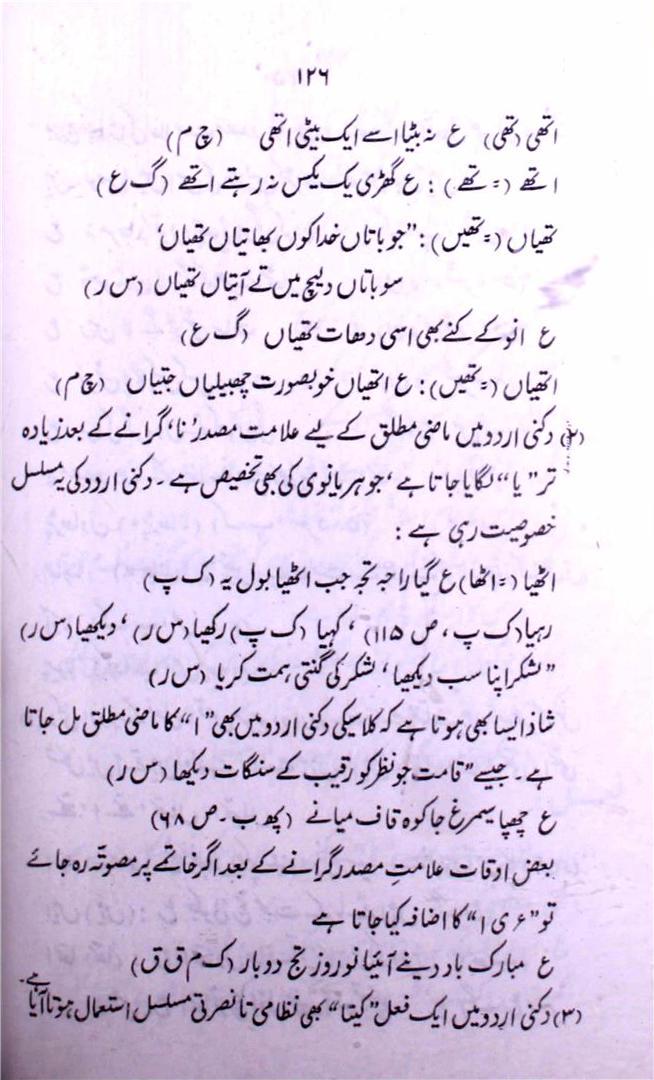 ۱۲۶
اتھی (تھی) ع نہ بیٹا اسے ایک بیٹی اتھی (چ م)
اتھے (= تھے) : ع گھڑی یک یکس نہ رہتے اتھے (گ ع)
تھیاں (= تھیں) : "جو باتاں خدا کوں بھاتیاں تھیاں'
سو باتاں دلیچ میں تے آتیاں تھیاں (س ر)
ع انو کے کنے بھی اسی دھات تھیاں (گ ع)
اتھیاں (= تھیں) : ع اتھیاں خوبصورت چھبیلیاں جتیاں (چ م)
(۲) دکنی اردو میں ماضی مطلق کے لیے علامت مصدر 'نا' گرانے کے بعد زیادہ
تر "یا" لگایا جاتا ہے' جو ہریانوی کی بھی تخصیص ہے ۔ دکنی اردو کی یہ مسلسل
خصوصیت رہی ہے :
اٹھیا (= اٹھا) ع گیا راجہ تجہ جب اٹھیا بول یہ (ک پ)
رہیا (ک پ ، ص ۱۱۵) ' کہیا (ک پ) رکھیا (س ر) ' دیکھیا (س ر)
"لشکر اپنا سب دیکھیا' لشکر کی گنتی ہمت کریا (س ر)
شاذ ایسا بھی ہوتا ہے کہ کلاسیکی دکنی اردو میں بھی "ا" کا ماضی مطلق مل جاتا
ہے ۔ جیسے "قامت جو نظر کو رقیب کے سنگات دیکھا (س ر)
ع چھپا سیمرغ جا کوہ قاف میانے (پھ ب ۔ ص ۶۸)
بعض اوقات علامتِ مصدر گرانے کے بعد اگر خاتمے پر مصوتہ رہ جائے
تو "ء ی ا" کا اضافہ کیا جاتا ہے
ع مبارک باد دینے آئیا نوروز تج دوبار (ک م ق ق)
(۳) دکنی اردو میں ایک فعل "کیتا" بھی نظامی تا نصرتی مسلسل استعمال ہوتا آیا ہے۔